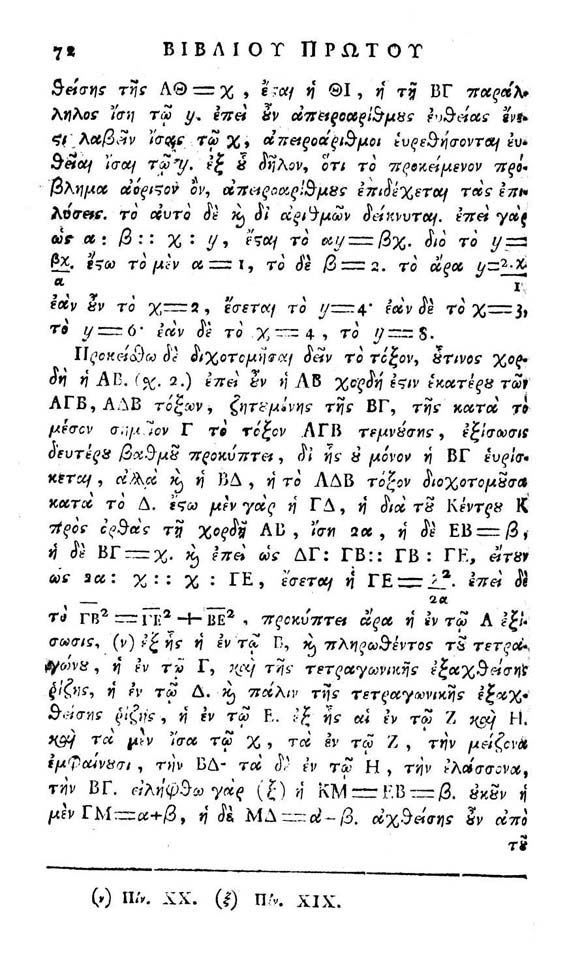 72 ΒΙΒΛΙΟΥ ΠΡΩΤΟΥ
θείσης τῆς ΑΘ = χ, ἔςαι ἡ ΘΙ, ἡ τῇ ΒΓ παράλ-
ληλος ἴση τῷ y. ἐπεὶ ȣ̓ν ἀπειροαρίθμȣς εὐθείας ἔνε-
ςι λαβεῖν ἴσας τῷ χ, ἀπειροάριθμοι εὑρεθήσονται εὐ-
θεῖαι ἴσαι τῷ y. ἐξ ȣ̔ δῆλον, ὅτι τὸ προκείμενον πρό-
βλημα ἀόριςον ὂν, ἀπειροαρίθμȣς ἐπιδέχεται τὰς ἐπι-
λύσεις. τὸ αὐτὸ δὲ ϗ δι ἀριθμῶν δείκνυται. ἐπεὶ γὰρ
ὡς α : β :: χ : y, ἔςαι τὸ αy = βχ. διὸ τὸ y =
βχ. ἔςω τὸ μὲν α = 1, τὸ δὲ β = 2. τὸ ἄρα y = 2.χ
α 1
ἐὰν ȣ̓ν τὸ χ = 2, ἔσεται τὸ y = 4· ἐὰν δὲ τὸ χ = 3,
τὸ y = 6· ἐὰν δὲ τὸ χ = 4, τὸ y = 8.
Προκείσθω δὲ διχοτομῆσαι δεῖν τὸ τόξον, ȣ̔́τινος χορ-
δὴ ἡ ΑΒ. (χ. 2.) ἐπεὶ ȣ̓ν ἡ ΑΒ χορδή ἐςιν ἑκατέρȣ τῶν
ΑΓΒ, ΑΔΒ τόξων, ζητȣμένης τῆς ΒΓ, τῆς κατὰ τὸ
μέσον σημεῖον Γ τὸ τόξον ΑΓΒ τεμνȣ́σης, ἐξίσωσις
δευτέρȣ βαθμȣ͂ προκύπτει, δι ἧς ȣ̓ μόνον ἡ ΒΓ εὑρίσ-
κεται, ἀλλὰ ϗ ἡ ΒΔ, ἡ τὸ ΑΔΒ τόξον διοχοτομȣ͂σα
κατὰ τὸ Δ. ἔςω μὲν γὰρ ἡ ΓΔ, ἡ διὰ τȣ͂ Κέντρȣ Κ
πρὸς ὀρθὰς τῇ χορδῇ ΑΒ, ἴση 2α, ἡ δὲ ΕΒ = β,
ἡ δὲ ΒΓ = χ. ϗ ἐπεὶ ὡς ΔΓ : ΓΒ :: ΓΒ : ΓΕ, εἴτȣν
ὡς 2α : χ :: χ : ΓΕ, ἔσεται ἡ ΓΕ = χ². ἐπεὶ δὲ
2α
τὸ ΓΒ² = ΓΕ² + ΒΕ², προκύπτει ἄρα ἡ ἐν τῷ Α ἐξί-
σωσις, (ν) ἐξ ἧς ἡ ἐν τῷ Β, ϗ πληρωθέντος τȣ͂ τετρα-
γώνȣ, ἡ ἐν τῷ Γ, καὶ τῆς τετραγωνικῆς ἐξαχθείσης
ῥίζης, ἡ ἐν τῷ Δ. ϗ πάλιν τῆς τετραγωνικῆς ἐξαχ-
θείσης ῥίζης, ἡ ἐν τῷ Ε. ἐξ ἧς αἱ ἐν τῷ Ζ καὶ Η.
καὶ τὰ μὲν ἴσα τῷ χ, τὰ ἐν τῷ Ζ, τὴν μείζονα
ἐμφαίνȣσι, τὴν ΒΔ· τὰ δὲ ἐν τῷ Η, τὴν ἐλάσσονα,
τὴν ΒΓ. εἰλήφθω γὰρ (ξ) ἡ ΚΜ = ΕΒ = β. ȣ̓κȣ͂ν ἡ
μὲν ΓΜ = α + β, ἡ δὲ ΜΔ = α - β. ἀχθείσης ȣ̓ν ἀπὸ
τȣ͂
(ν) Πίν. XX. (ξ) Πίν. XIX.